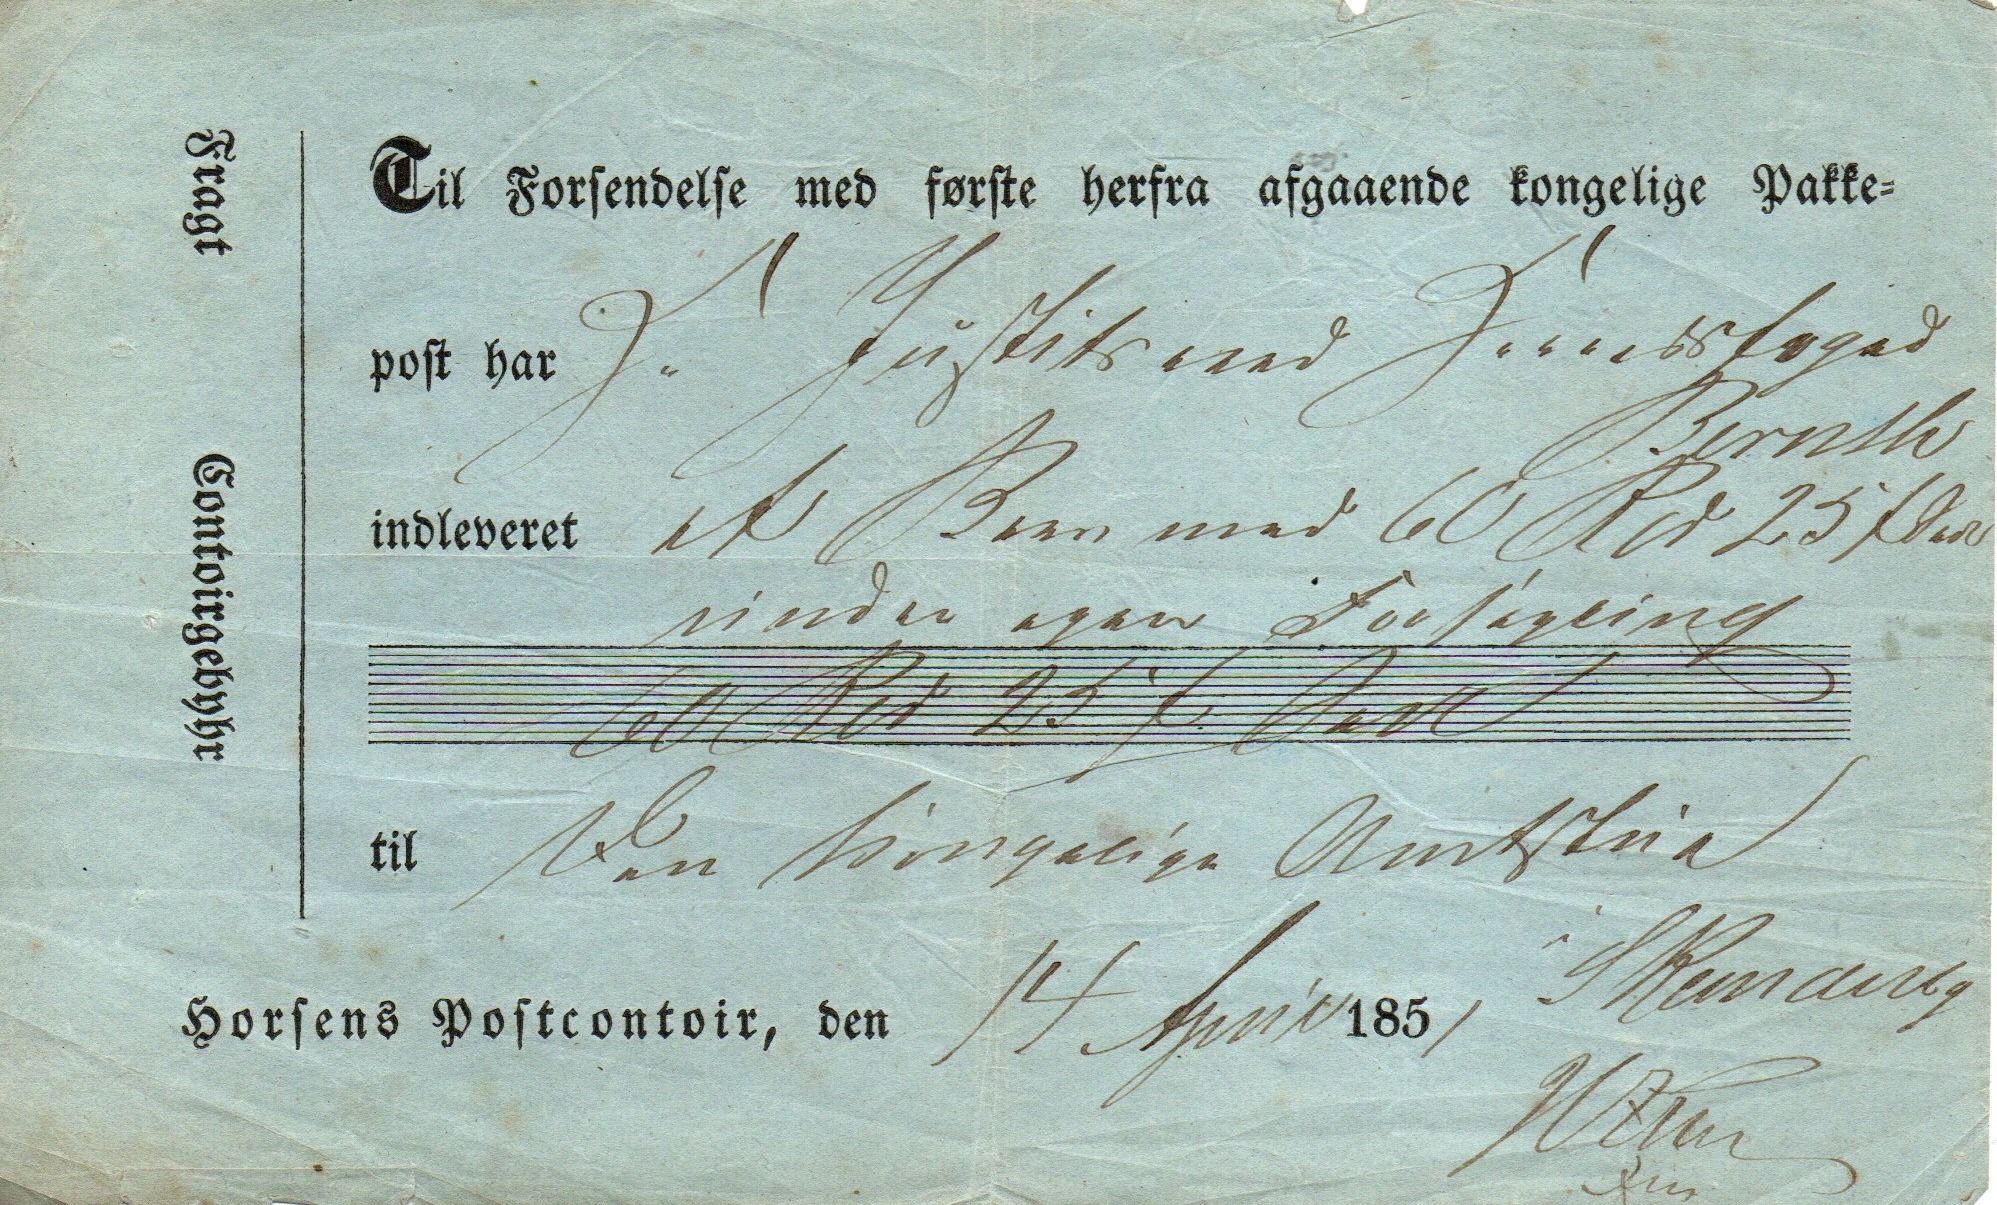 Fragt
Contoirgebyhr
Til Forsendelse med første herfra afgaaende kongelige Pakke=
post har Hr Justitsraad Herredsfoged
Bernth
indleveret et Brev med 60 Rd 25 s
under egen Forsegling
60 Rd 25 s
til Den kongelige Amtstue
i Skanderborg
Horsens Postcontoir, den 14 April 1851